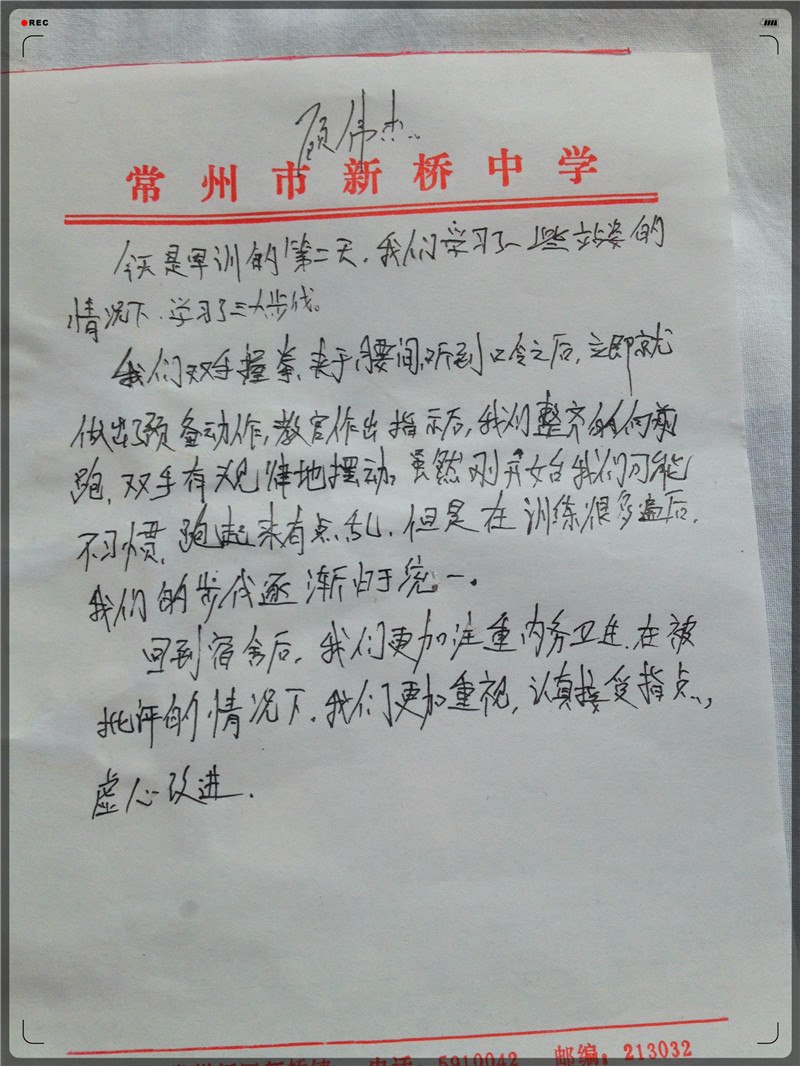 REC
顾伟杰
常州市新桥中学
今天是军训的第二天.我们学习了一些站姿的
情况下.学习了三大步伐。
我们双手握拳,夹于腰间,听到口令之后,立即就
做出了预备动作,教官作出指示后,我们整齐的向前
跑,双手有规律地摆动。虽然刚开始我们可能
不习惯,跑起来有点乱.但是在训练很多遍后.
我们的步伐逐渐归于统一.
回到宿舍后,我们更加注重内务卫生.在被
批评的情况下.我们更加重视,认真接受指点,
虚心改进.
电话:5910042 邮编:213032